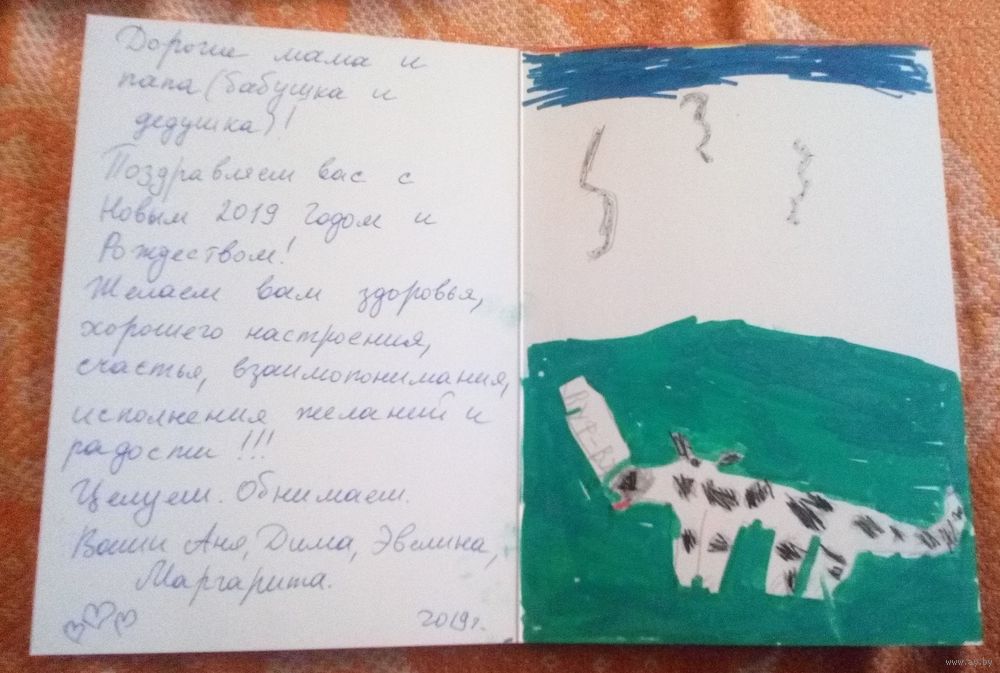 Дорогие мама и
папа (бабушка и
дедушка)!
Поздравляем вас с
Новым 2019 Годом и
Рождеством!
Желаем вам здоровья,
хорошего настроения,
счастья, взаимопонимания,
исполнения желаний и
радости!!!
Целуем. Обнимаем.
Ваши Аня, Дима, Эвелина,
Маргарита.
2019г.
www.ay.by